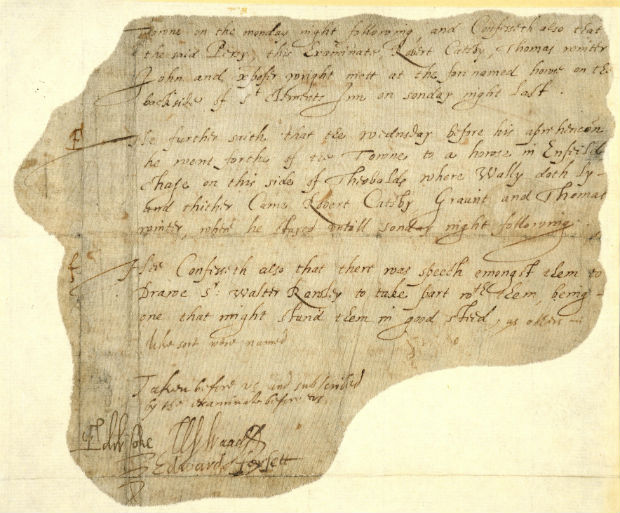 Towne on the monday night following, and Confesseth also that
the said Percy, this Examinate, Robert Catsby, Thomas winter
John and xpofer wright mett at the fornamed howse on the
backside of St Clements Inn on sonday night last.
He further saith that the wednsday before his apprhencon
he went forthe of the Towne to a howse in Enfeild
Chase on this side of Theobalds where Wally doth ly
and thither Came Robert Catsby Graunt and Thomas
winter, where he stayed untill sonday night following.
Hee Confesseth also that there was speech emongst them to
Drawe Sr. Walter Rawley to take part wth them, being
one that might stand them in good steed, as others
like sort were named
Taken before vs and subscribed
by the examinate before vs.
Edw Coke W Waad
Edward Forsett